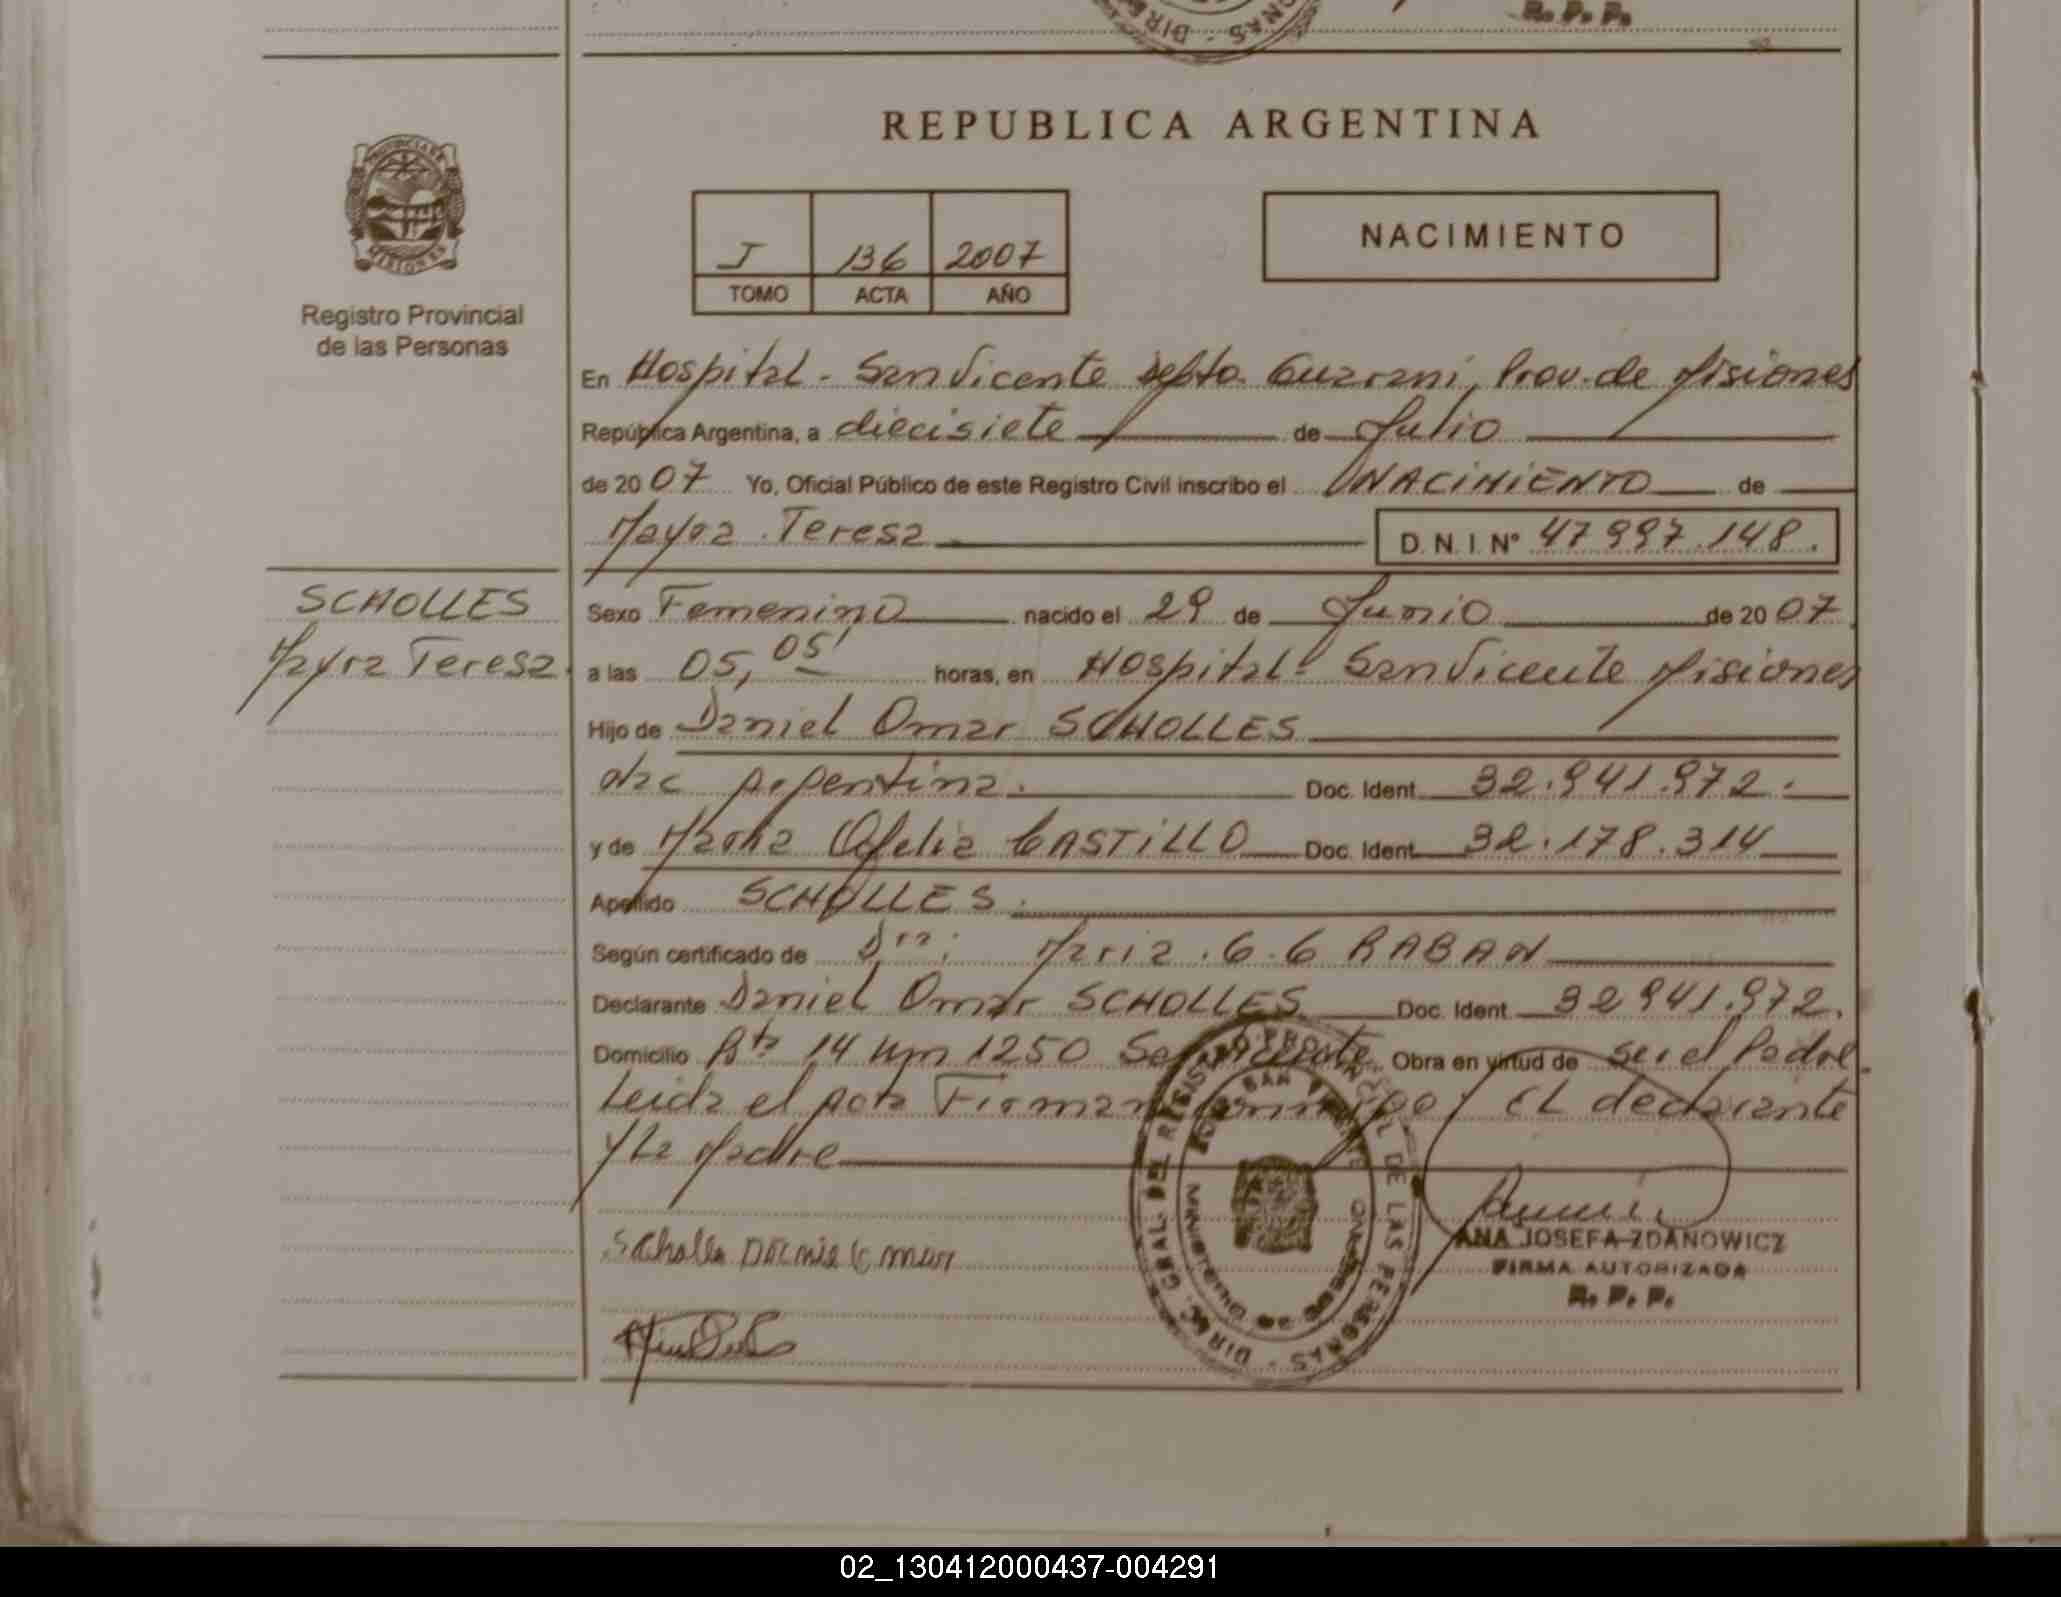 R. P. P.
DIREC
ONAS
REPUBLICA ARGENTINA
PROVINCIA DE
MISIONES
Registro Provincial
de las Personas
J 136 2007
TOMO ACTA AÑO
NACIMIENTO
En Hospital - San Vicente depto. Guarani, Prov. de Misiones
República Argentina, a diecisiete de Julio
de 2007 Yo, Oficial Público de este Registro Civil inscribo el NACIMIENTO de
Mayra Teresa D. N. I. N° 47 997.148.
SCHOLLES
Mayra Teresa.
Sexo Femenino nacido el 29 de Junio de 2007
a las 05, 05' horas, en Hospital - San Vicente Misiones
Hijo de Daniel Omar SCHOLLES
Nac Argentina. Doc. Ident. 32.941.972.
y de Maria Ofelia CASTILLO Doc. Ident. 32.178.314
Apellido SCHOLLES.
Según certificado de Dra: Maria. G. G RABAN
Declarante Daniel Omar SCHOLLES Doc. Ident 32 941.972.
Domicilio Rta 14 Km 1250 San Vicente Obra en virtud de ser el Padre
Leida el Acta Firman conmigo, el declarante
y La Madre
DIREC. GRAL. DEL REGISTRO PROVINCIAL DE LAS PERSONAS
SAN VICENTE
ANA JOSEFA ZDANOWICZ
FIRMA AUTORIZADA
R. P. P.
02_130412000437-004291